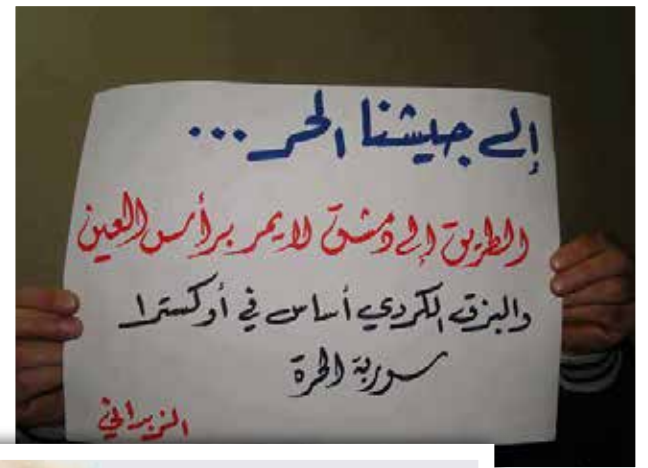 إلى جيشنا الحر ...
الطريق إلى دمشق لا يمر برأس العين
والبزق الكردي أساس في أوكسترا
سورية الحرة
الزبداني